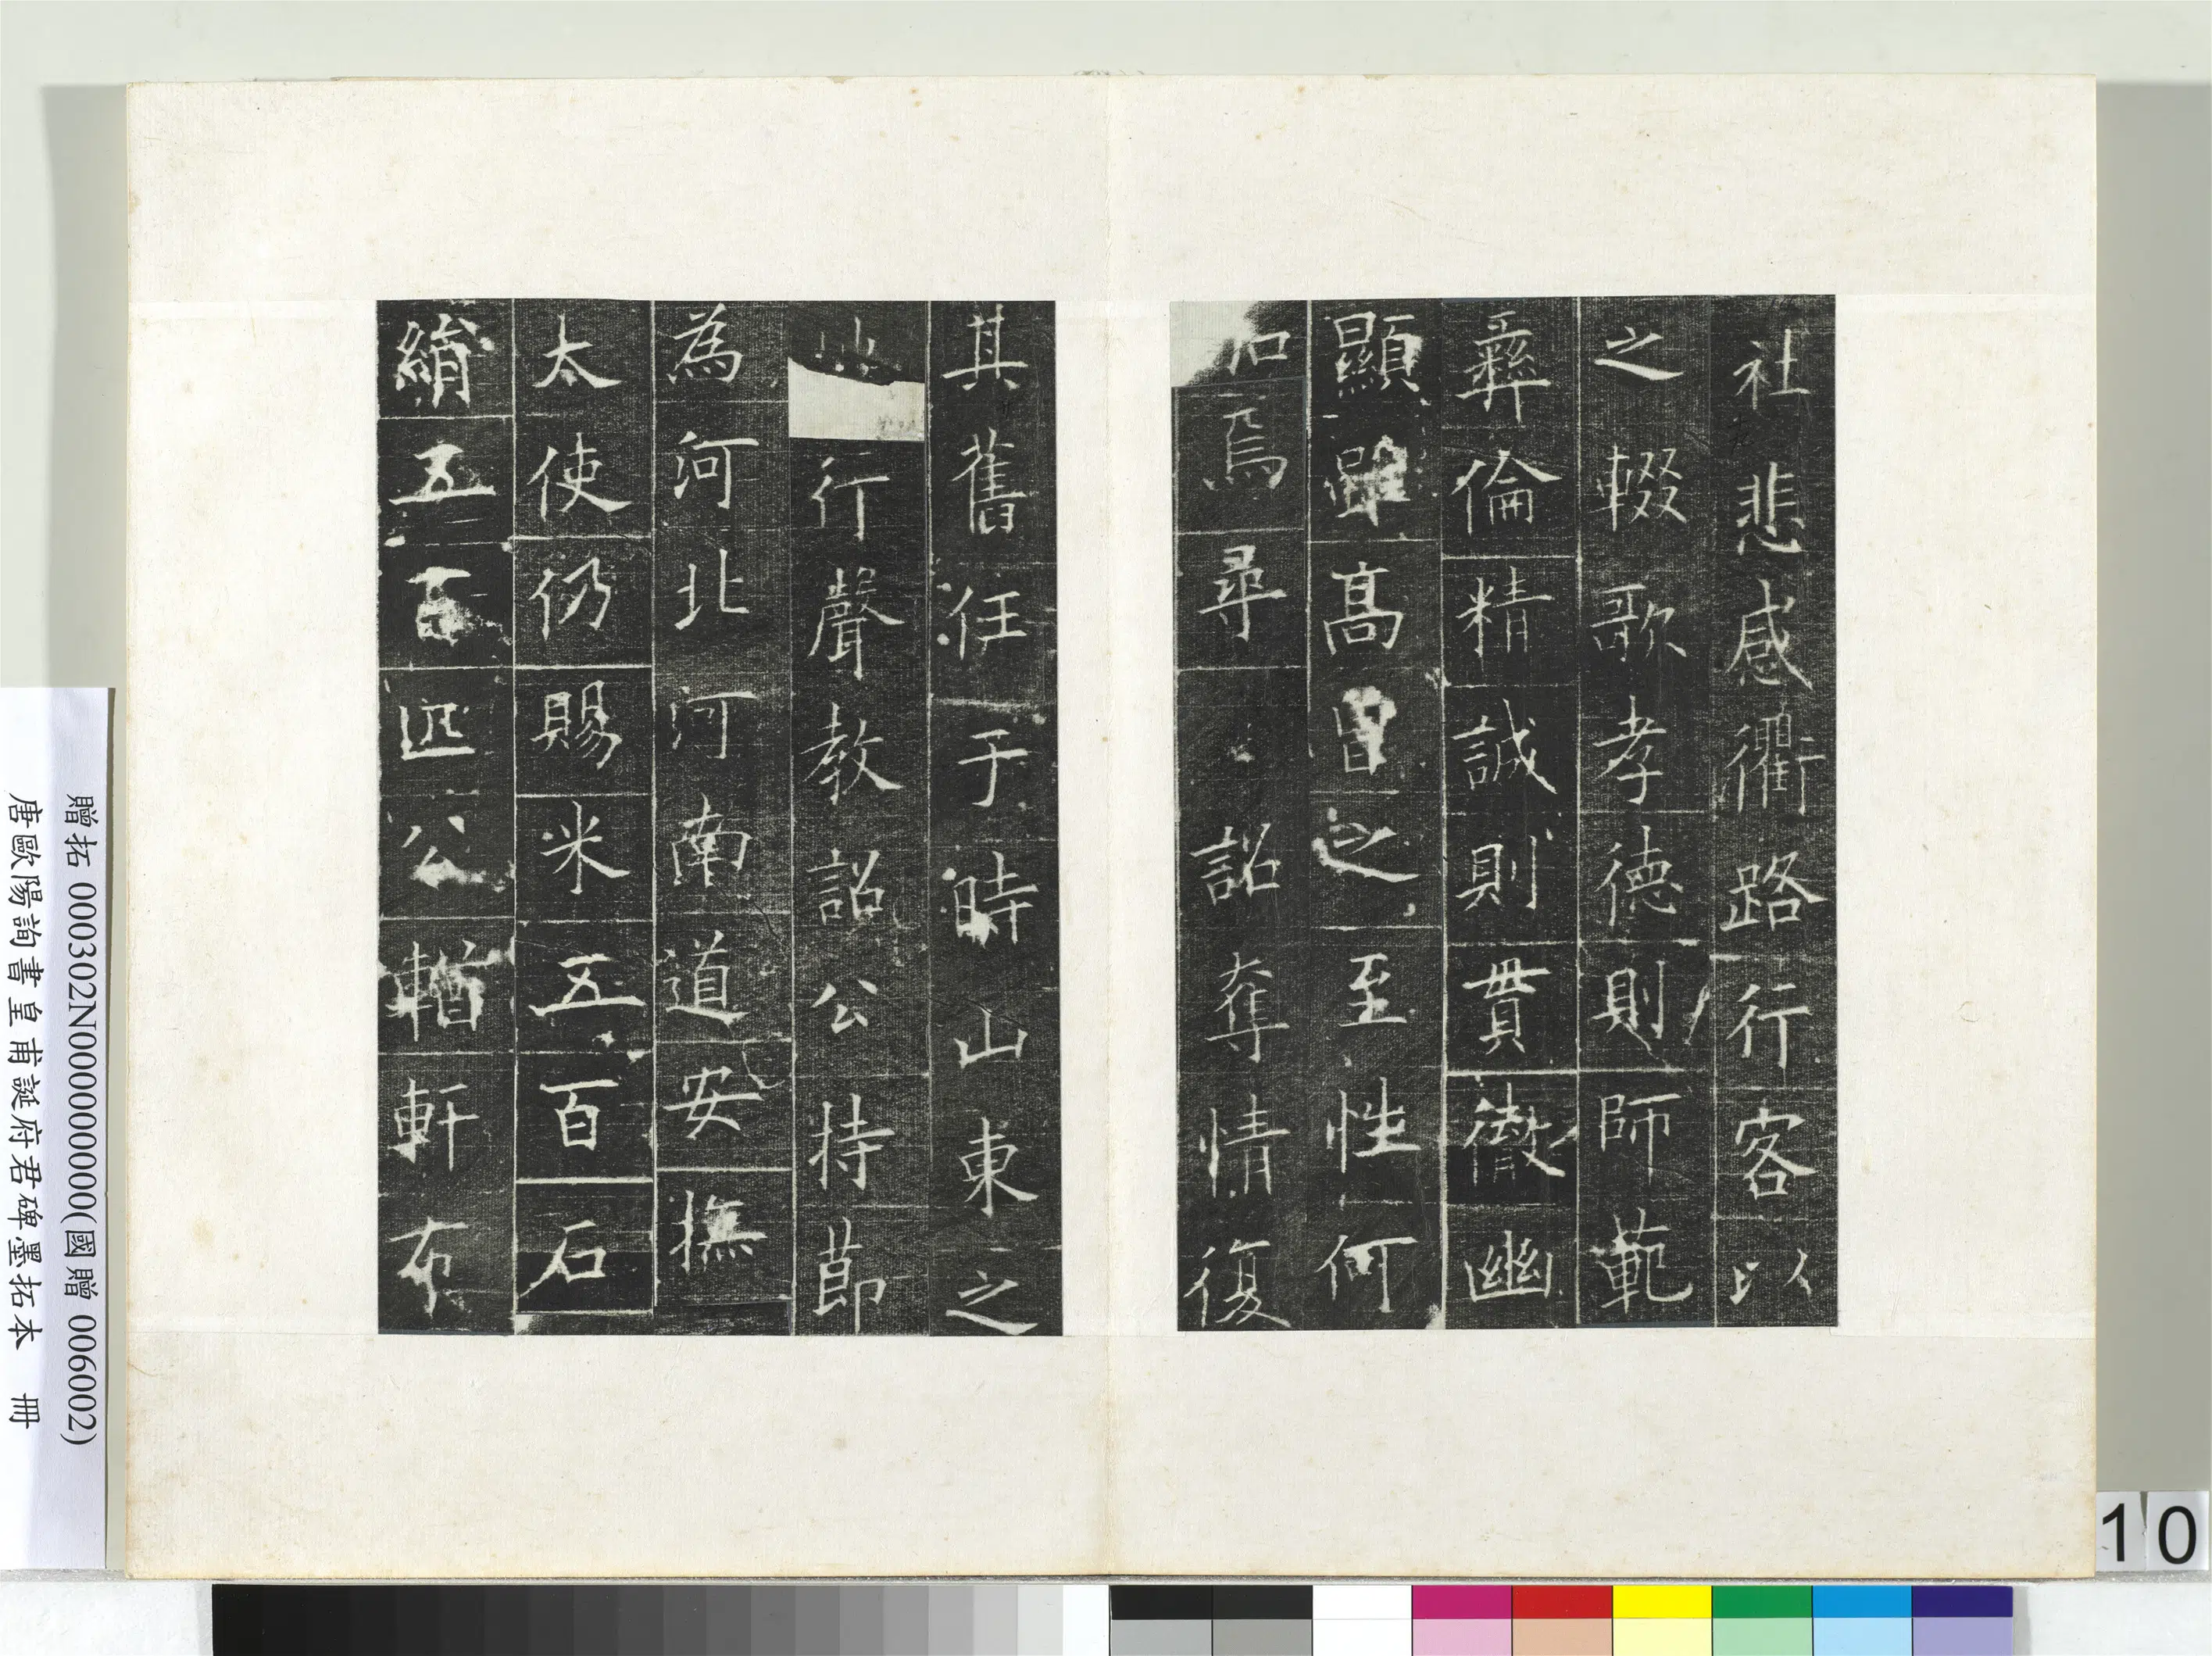 社悲感衢路行客以
之輟歌孝德則師範
彝倫精誠則貫徹幽
顯雖高曾之至性何
以加焉尋詔奪情復
其舊任于時山東之
地行聲教詔公持節
為河北河南道安撫
太使仍賜米五百石
絹五百匹公輶軒布
贈拓 000302N000000000(國贈 006002)
唐歐陽詢書皇甫誕府君碑墨拓本 冊
10